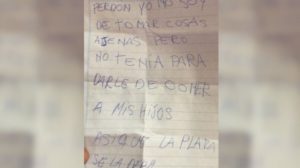 PERDON YO NO SOY
DE TOMAR COSAS
AJENAS PERO
NO TENIA PARA
DARLE DE COMER
A MIS HIJOS
ASI QUE LA PLATA
SE LA PARA